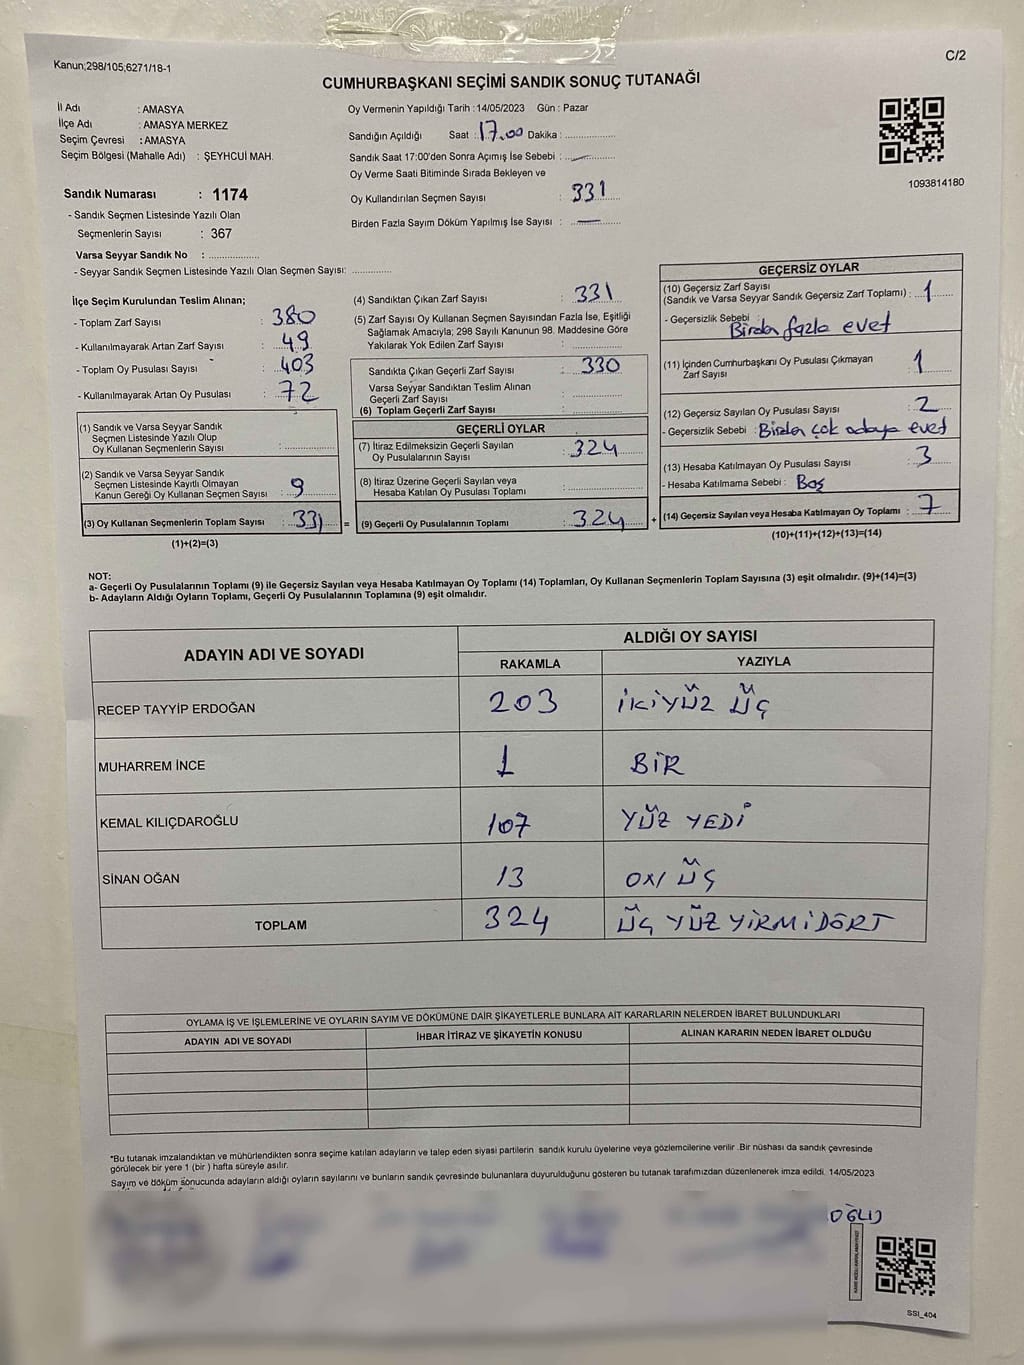 Kanun;298/105,6271/18-1
C/2
CUMHURBAŞKANI SEÇİMİ SANDIK SONUÇ TUTANAĞI
İl Adı : AMASYA
İlçe Adı : AMASYA MERKEZ
Seçim Çevresi : AMASYA
Seçim Bölgesi (Mahalle Adı) : ŞEYHCUİ MAH.
Sandık Numarası : 1174
- Sandık Seçmen Listesinde Yazılı Olan
Seçmenlerin Sayısı : 367
Varsa Seyyar Sandık No : ....................
- Seyyar Sandık Seçmen Listesinde Yazılı Olan Seçmen Sayısı: ...............
Oy Vermenin Yapıldığı Tarih : 14/05/2023 Gün : Pazar
Sandığın Açıldığı Saat : 17.00 Dakika : ....................
Sandık Saat 17:00'den Sonra Açımış İse Sebebi : —
Oy Verme Saati Bitiminde Sırada Bekleyen ve
Oy Kullandırılan Seçmen Sayısı : 331
Birden Fazla Sayım Döküm Yapılmış İse Sayısı : —
1093814180
İlçe Seçim Kurulundan Teslim Alınan;
- Toplam Zarf Sayısı : 380
- Kullanılmayarak Artan Zarf Sayısı : 49
- Toplam Oy Pusulası Sayısı : 403
- Kullanılmayarak Artan Oy Pusulası : 72
(1) Sandık ve Varsa Seyyar Sandık
Seçmen Listesinde Yazılı Olup
Oy Kullanan Seçmenlerin Sayısı : ....................
(2) Sandık ve Varsa Seyyar Sandık
Seçmen Listesinde Kayıtlı Olmayan
Kanun Gereği Oy Kullanan Seçmen Sayısı : 9
(3) Oy Kullanan Seçmenlerin Toplam Sayısı : 331 =
(1)+(2)=(3)
(4) Sandıktan Çıkan Zarf Sayısı : 331
(5) Zarf Sayısı Oy Kullanan Seçmen Sayısından Fazla İse, Eşitliği
Sağlamak Amacıyla; 298 Sayılı Kanunun 98. Maddesine Göre
Yakılarak Yok Edilen Zarf Sayısı : ....................
Sandıkta Çıkan Geçerli Zarf Sayısı : 330
Varsa Seyyar Sandıktan Teslim Alınan
Geçerli Zarf Sayısı : ....................
(6) Toplam Geçerli Zarf Sayısı : ....................
GEÇERLİ OYLAR
(7) İtiraz Edilmeksizin Geçerli Sayılan
Oy Pusulalarının Sayısı : 324
(8) İtiraz Üzerine Geçerli Sayılan veya
Hesaba Katılan Oy Pusulası Toplamı : ....................
(9) Geçerli Oy Pusulalarının Toplamı : 324 +
GEÇERSİZ OYLAR
(10) Geçersiz Zarf Sayısı
(Sandık ve Varsa Seyyar Sandık Geçersiz Zarf Toplamı) : 1
- Geçersizlik Sebebi : Birden fazla evet
(11) İçinden Cumhurbaşkanı Oy Pusulası Çıkmayan
Zarf Sayısı : 1
(12) Geçersiz Sayılan Oy Pusulası Sayısı : 2
- Geçersizlik Sebebi : Birden çok adaya evet
(13) Hesaba Katılmayan Oy Pusulası Sayısı : 3
- Hesaba Katılmama Sebebi : Boş
(14) Geçersiz Sayılan veya Hesaba Katılmayan Oy Toplamı : 7
(10)+(11)+(12)+(13)=(14)
NOT:
a- Geçerli Oy Pusulalarının Toplamı (9) ile Geçersiz Sayılan veya Hesaba Katılmayan Oy Toplamı (14) Toplamları, Oy Kullanan Seçmenlerin Toplam Sayısına (3) eşit olmalıdır. (9)+(14)=(3)
b- Adayların Aldığı Oyların Toplamı, Geçerli Oy Pusulalarının Toplamına (9) eşit olmalıdır.
ADAYIN ADI VE SOYADI ALDIĞI OY SAYISI
RAKAMLA YAZIYLA
RECEP TAYYİP ERDOĞAN 203 İKİYÜZ ÜÇ
MUHARREM İNCE 1 BİR
KEMAL KILIÇDAROĞLU 107 YÜZ YEDİ
SİNAN OĞAN 13 ON ÜÇ
TOPLAM 324 ÜÇ YÜZ YİRMİDÖRT
OYLAMA İŞ VE İŞLEMLERİNE VE OYLARIN SAYIM VE DÖKÜMÜNE DAİR ŞİKAYETLERLE BUNLARA AİT KARARLARIN NELERDEN İBARET BULUNDUKLARI
ADAYIN ADI VE SOYADI İHBAR İTİRAZ VE ŞİKAYETİN KONUSU ALINAN KARARIN NEDEN İBARET OLDUĞU
*Bu tutanak imzalandıktan ve mühürlendikten sonra seçime katılan adayların ve talep eden siyasi partilerin sandık kurulu üyelerine veya gözlemcilerine verilir .Bir nüshası da sandık çevresinde
görülecek bir yere 1 (bir ) hafta süreyle asılır.
Sayım ve döküm sonucunda adayların aldığı oyların sayılarını ve bunların sandık çevresinde bulunanlara duyurulduğunu gösteren bu tutanak tarafımızdan düzenlenerek imza edildi. 14/05/2023
OĞLU
SSI_404